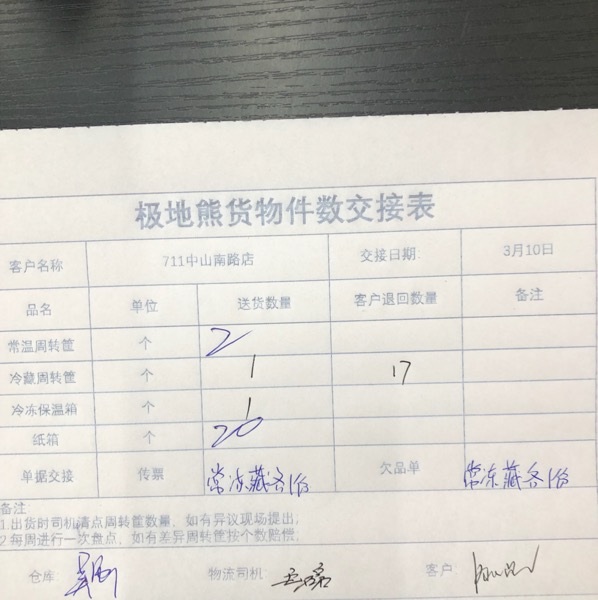 极地熊货物件数交接表
客户名称 711中山南路店 交接日期 3月10日
品名 单位 送货数量 客户退回数量 备注
常温周转筐 个 2
冷藏周转筐 个 1 17
冷冻保温箱 个 1
纸箱 个 20
单据交接 传票 常冻藏各1份 欠品单 常冻藏各1份
备注
1.出货时司机清点周转筐数量，如有异议现场提出；
2.每周进行一次盘点，如有差异周转筐按个数赔偿；
仓库 物流司机 客户